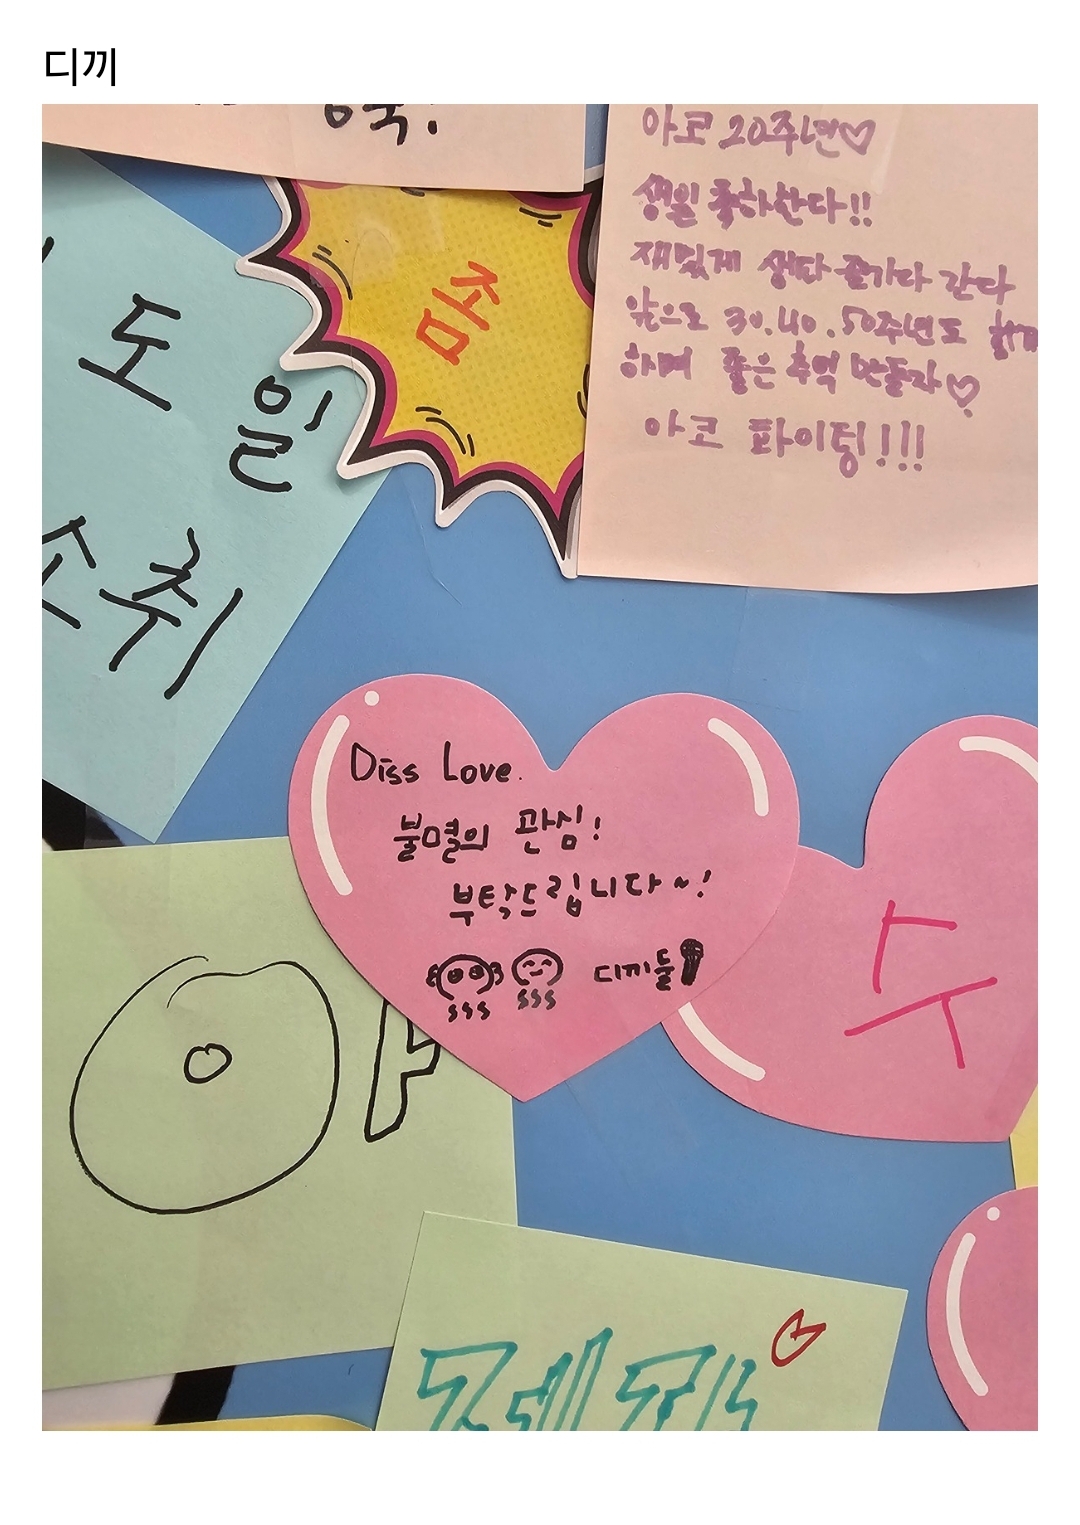 디끼
축!
아코 20주년♡
생일 축하한다!!
재밌게 생파 즐기다 간다
앞으로 30.40.50주년도 함께
하며 좋은 추억 만들자♡
아코 파이팅!!!
좀
도
일
소취
Diss Love.
불멸의 관심!
부탁드립니다~!
디끼들
수
야